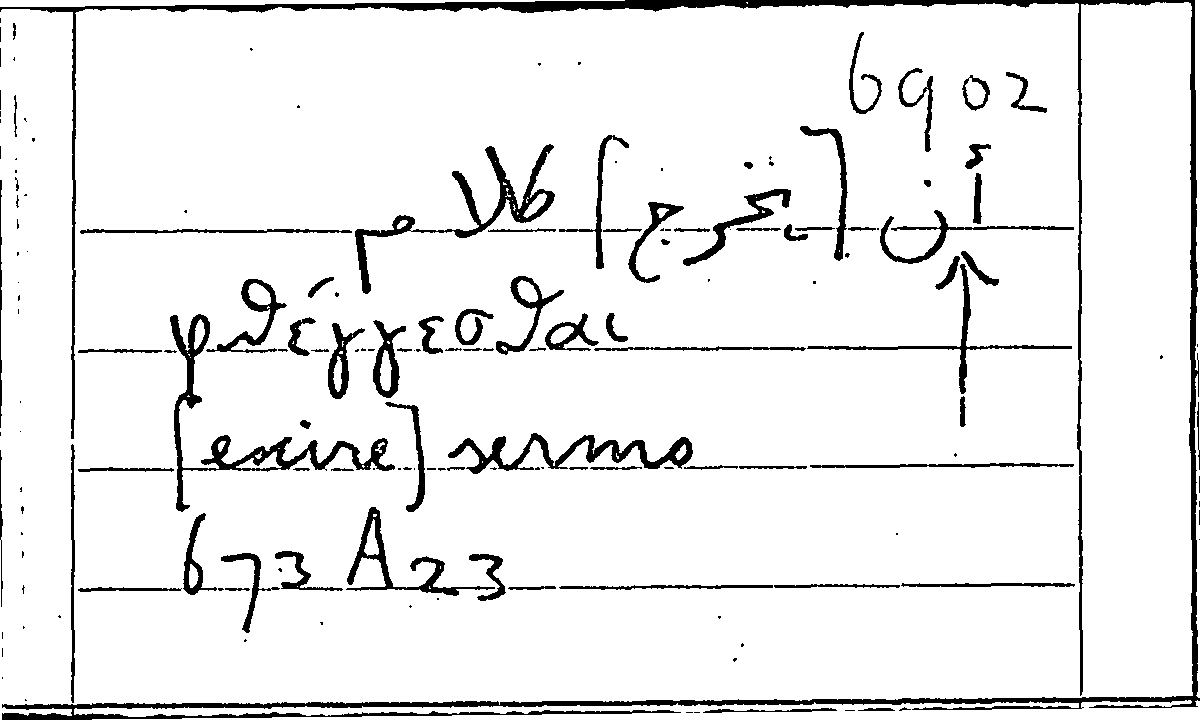 6902
أن [يخرج] كلام
φθέγγεσθαι
[exire] sermo
673 A 23